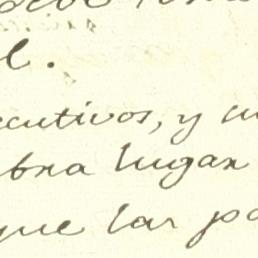 l.
ecutivos, y
bra lugar
que las pa